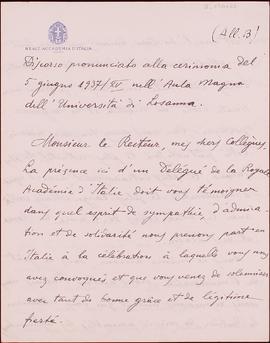 REALE ACCADEMIA D'ITALIA
(All. B)
Discorso pronunciato alla cerimonia del
5 giugno 1937/XV nell'Aula Magna
dell'Università di Losanna.
Monsieur le Recteur, mes chers Collègues,
La présence ici d'un Délégué de la Royale
Académie d'Italie doit vous témoigner
dans quel esprit de sympathie, d'admira-
tion et de solidarité nous prenons part en
Italie à la célébration à laquelle vous nous
avez convoqués et que vous venez de solenniser
avec tant de bonne grâce et de légitime
fierté.